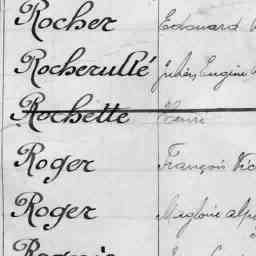 Rocher Edouard
Rocherullé Julien, Eugène
Rochette Henri
Roger François Vic
Roger